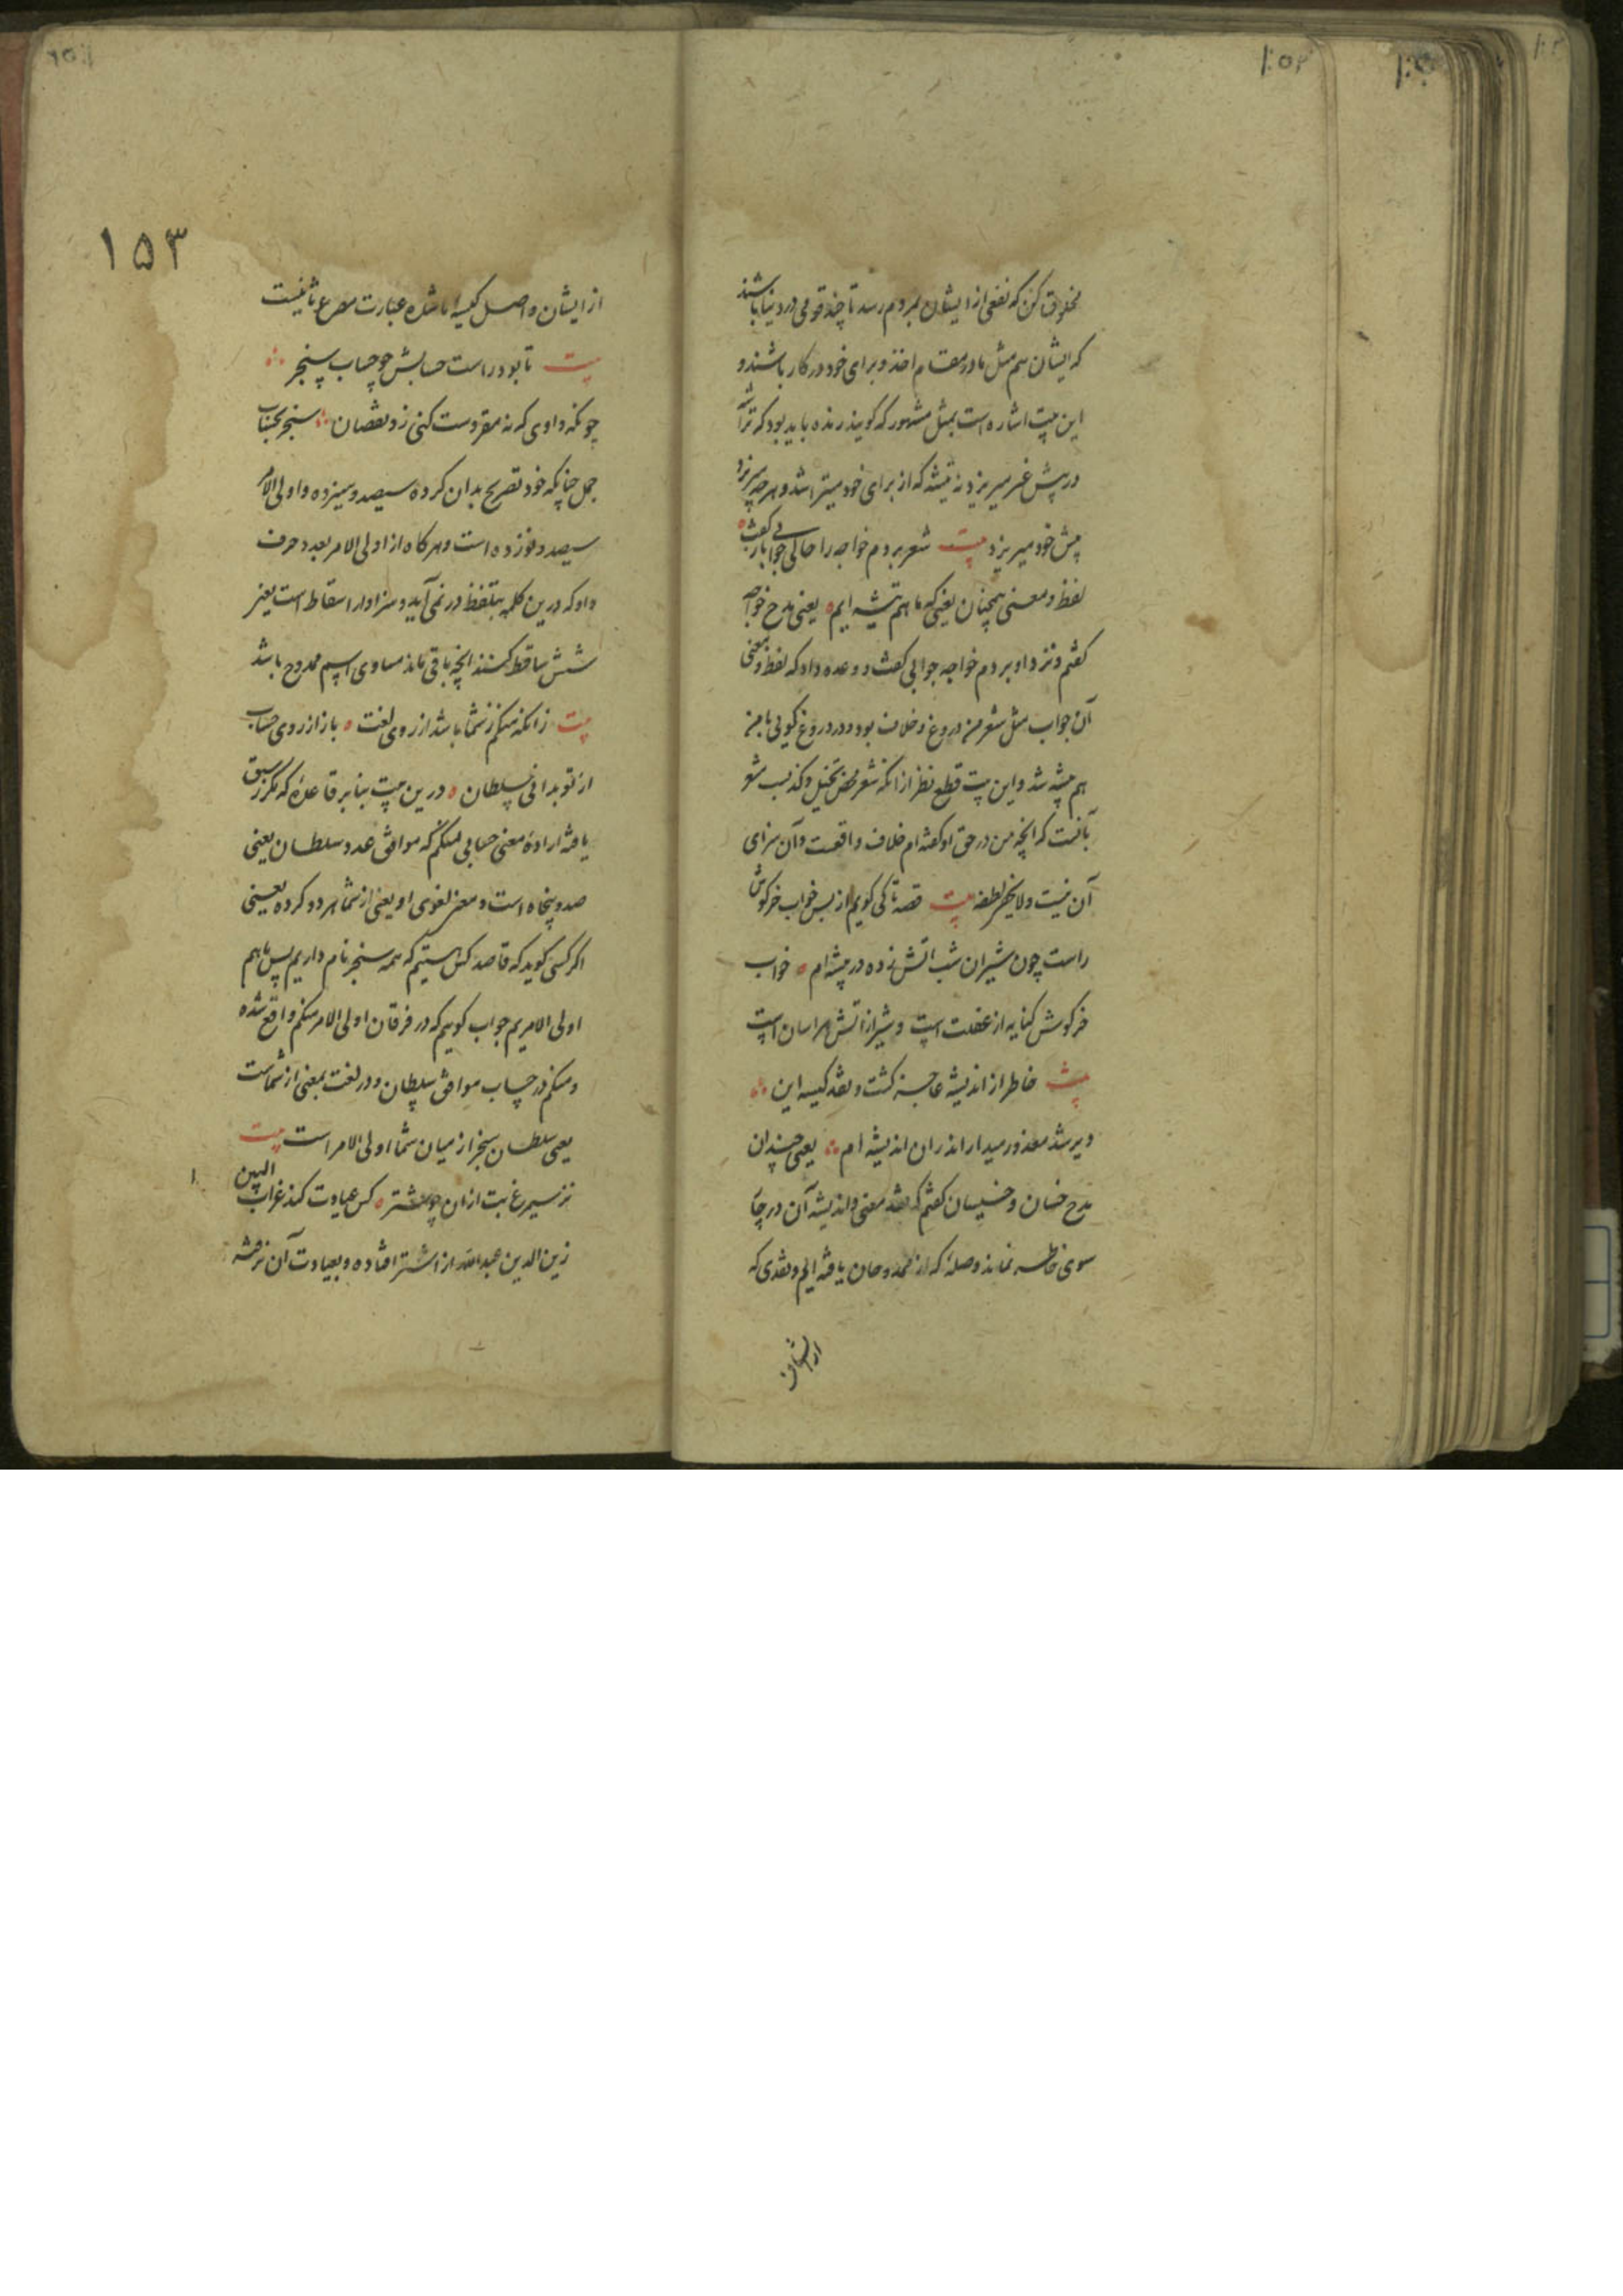 مخلوق کن که نفعی از ایشان بمردم رسد تا چند قومی در دنیا باشند
که ایشان هم مثل ما در مقام اخذ و برای خود در کار باشند و
این بیت اشاره است بمثل مشهور که کویند رنده باید بود که تراشه
در پیش غیر میریزد نه تیشه که از برای خود میتراشد و هرچه میریزد
پیش خود میریزد بیت شعر بردم خواجه را حالی جوابی باز کفت
لفظ و معنی همچنان یعنی که ما هم تیشه ایم یعنی مدح خواجه
کفتم و نزد او بردم خواجه جوابی کفت و وعده داد که لفظ و معنی
آن جواب مثل شعر من دروغ و خلاف بود و در دروغ کویی با من
هم پیشه شد و این بیت قطع نظر از انکه شعر محض تخیل و کذب شعر
بآنست که انچه من در حق او کفته ام خلاف واقعست و آن سزای
آن نیست ولا یخفی لطفه بیت قصه تا کی کویم از بس خواب خرکوش
راست چون شیران شب آتش زده در بیشه ام خواب
خرکوش کنایه از غفلت است و شیر از آتش هراسان است
بیت خاطر از اندیشه عاجز کشت و نقد کیسه این
دیر شد معذور میدار اندران اندیشه ام یعنی چندان
مدح خسان و خسیسان کفتم که نقد معنی و اندیشه آن در چا
سوی خاطر نماند و صلهٔ که از ممدوحان یافته ایم و نقدی که
از ایشان
۱۵۳
از ایشان واصل کیسه ما شده عبارت مصرع ثانیست
بیت تا بود راست حسابش چو حساب سنجر
چونکه واوی که نه مقروست کنی زو نقصان سنجر بحساب
جمل چنانکه خود تصریح بدان کرده سیصد و سیزده و اولی الامر
سیصد و نوزده است و هرکاه از اولی الامر بعدد حرف
واو که درین کلمه بتلفظ در نمی آید و سزاوار اسقاط است یعنی
شش ساقط کنند انچه باقی ماند مساوی اسم ممدوح باشد
بیت زانکه منکم ز شما باشد از روی لغت باز از روی حساب
از تو بدانی سلطان درین بیت بنابر قاعدهٔ که مکرر سبق
یافته ارادهٔ معنی حسابی منکم که موافق عدد سلطان یعنی
صد و پنجاه است و معنی لغوی او یعنی از شما هر دو کرده یعنی
اکر کسی کوید که قاصد کس هستیم که همه سنجر نام داریم پس ما هم
اولی الامریم جواب کوییم که در فرقان اولی الامر منکم واقع شده
و منکم در حساب موافق سلطان و در لغت بمعنی از شماست
یعنی سلطان سنجر از میان شما اولی الامر است بیت
کس عیادت کند غراب البین
زین الدین عبدالله از اشتر افتاده و بعیادت آن نرفته